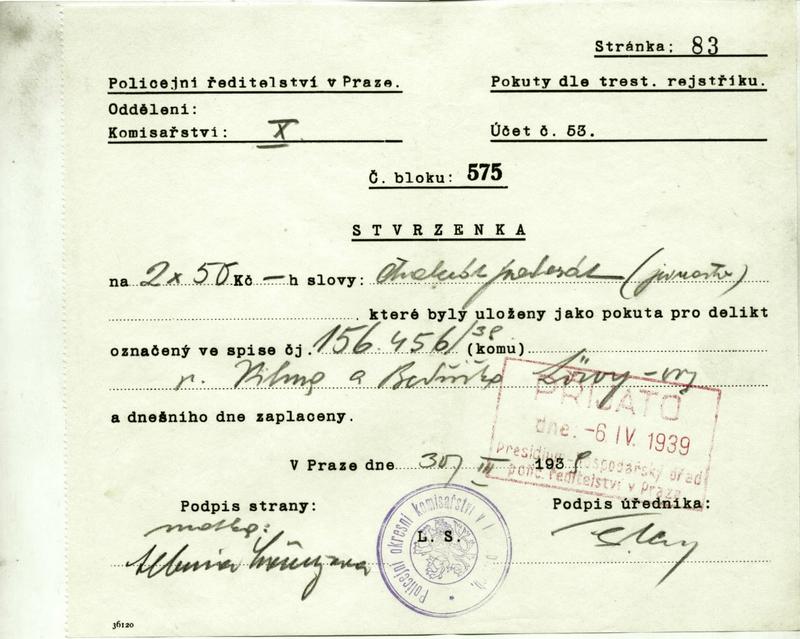 Stránka: 83
Policejní ředitelství v Praze.
Pokuty dle trest. rejstříku.
Oddělení:
Komisařství: X
Účet č. 53.
Č. bloku: 575
STVRZENKA
na 2x50 Kč — h slovy:
které byly uloženy jako pokuta pro delikt
označený ve spise čj. 156 456/38 (komu)
p. a
PŘIJATO
dne: -6 IV. 1939
presidium-hospodářský úřad
polic. ředitelství v Praze
a dnešního dne zaplaceny.
V Praze dne 30/III 1939
Podpis strany:
Podpis úředníka:
matka:
L. S.
Policejní okresní komisařství v
36120